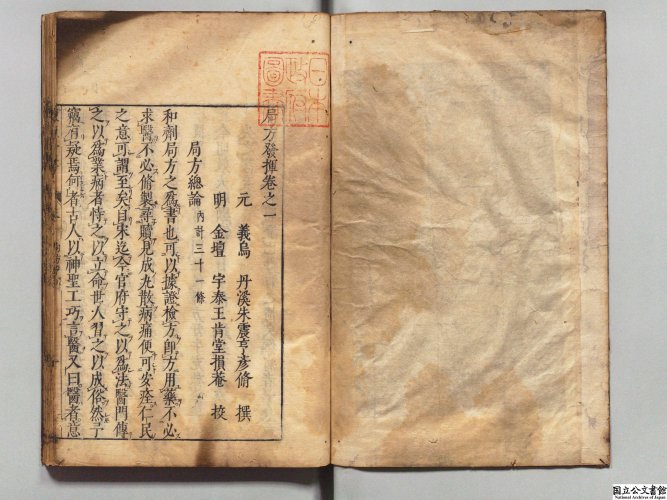 局方發揮卷之一
元 義烏 丹溪朱震亨彥脩 撰
明 金壇 宇泰王肯堂損菴 挍
局方總論 內計三十一條
和劑局方之爲書也可以據證檢方卽方用藥不必
求醫不必脩製尋贖見成丸散病痛便可安痊仁民
之意可謂至矣自宋迄今官府守之以爲法醫門傳
之以爲業病者恃之以立命世人習之以成俗然予
竊有疑焉何者古人以神聖工巧言醫又曰醫者意
日本
政府
圖書
国立公文書館
National Archives of Japan